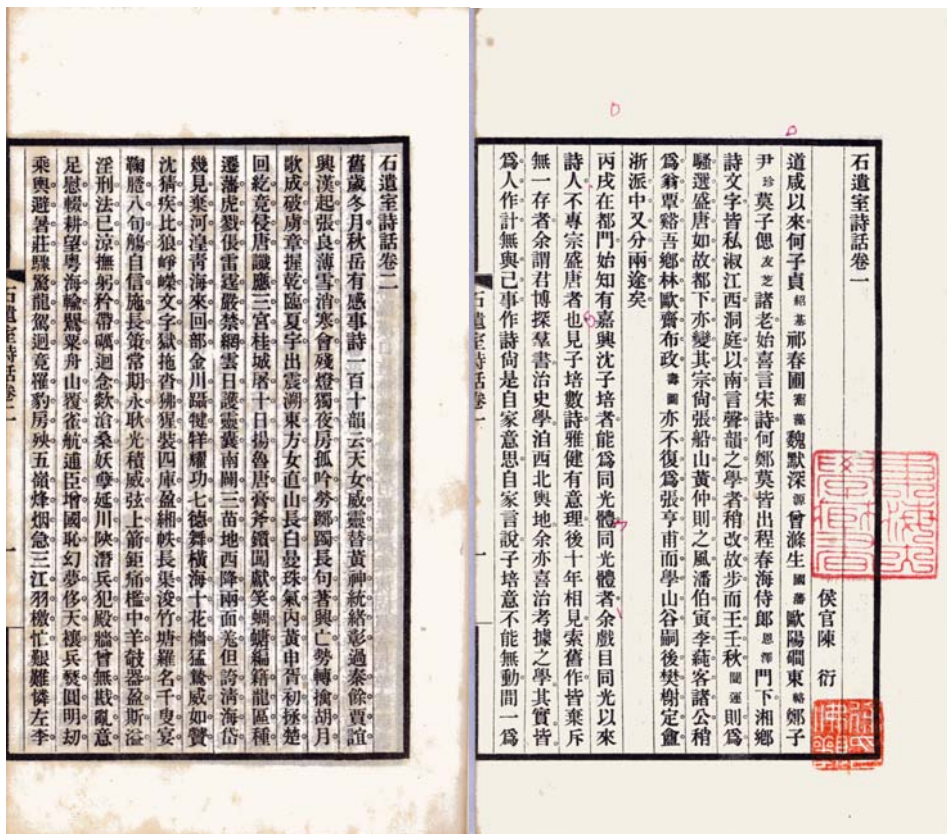 石遺室詩話卷一
侯官陳 衍
道咸以來何子貞紹基祁春圃寯藻魏默深源曾滌生國藩歐陽磵東輅鄭子
尹珍莫子偲友芝諸老始喜言宋詩何鄭莫皆出程春海侍郎恩澤門下湘鄉
詩文字皆私淑江西洞庭以南言聲韻之學者稍改故步而王壬秋闓運則爲
騷選盛唐如故都下亦變其宗尚張船山黃仲則之風潘伯寅李蒓客諸公稍
爲翁覃谿吾鄉林歐齋布政壽圖亦不復爲張亨甫而學山谷嗣後樊榭定盦
浙派中又分兩途矣
丙戌在都門始知有嘉興沈子培者能爲同光體同光體者余戲目同光以來
詩人不專宗盛唐者也見子培數詩雅健有意理後十年相見索舊作皆棄斥
無一存者余謂君博探羣書治史學洎西北輿地余亦喜治考據之學其實皆
爲人作計無與己事作詩尚是自家意思自家言說子培意不能無動間一爲
石遺室詩話卷一 一
石遺室詩話卷二
舊歲冬月秋岳有感事詩一百十韻云天女威靈替黃神統緒彰過秦餘賈誼
興漢起張良薄雪消寒會殘燈獨夜房孤吟勞躑躅長句著興亡勢轉擒胡月
歌成破虜章握乾臨夏宇出震溯東方女直山長白曼珠氣內黃申胥初拯楚
回紇竟侵唐讖應三宮桂城屠十日揚魯唐膏斧鑕閩獻笑蜩螗編籍龍區種
遷藩虎戮倀雷霆嚴禁網雲日護靈囊南闢三苗地西降兩面羌但誇清海岱
幾見棄河湟青海來回部金川躡犍牂耀功七德舞橫海十花檣猛鷙威如贊
沈猜疾比狼崢嶸文字獄拖沓狒猩裝四庫盈緗帙長渠浚竹塘羅名千叟宴
鞠䐜八旬觴自信施長策常期永耿光積威弦上箭鉅痛檻中羊攲器盈斯溢
淫刑法已涼撫躬矜帶礪迴念欻滄桑妖孽延川陝潛兵犯殿牆曾無戡亂意
足慰輟耕望粵海輸鸎粟舟山覆雀航逋臣增國恥幻夢侈天禳兵燹圓明刼
乘輿避暑莊驟驚龍駕迥竟罹豹房殃五嶺烽烟急三江羽檄忙艱難憐左李
石遺室詩話卷二 一